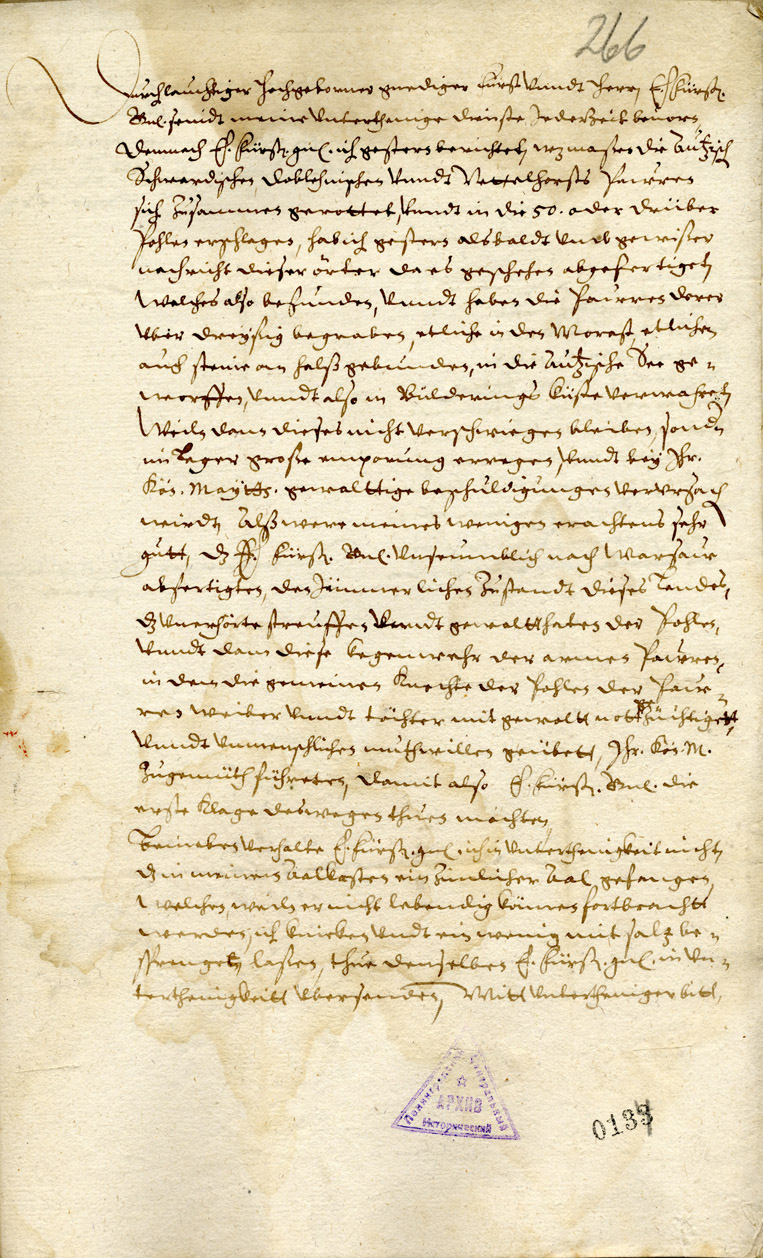 266
Durchlauchtiger Hochgeborner gnediger Fürst vnndt Herr, E. f. Fürstl.
Gnl. seindt meine vnterthenige dienste Jederzeit beuorn,
Demnach E. Fürstl. gnl. ich gestern berichtet, wz maßen die Autzisch
Schwardischen, Doblehnischen vnndt Nettelhorsts Paurren
sich zusammen gerottet, vnndt in die 50. oder drüber
Pohlen erschlagen, hab ich gestern alsbaldt vmb gewißer
nachricht dieser örter da es geschehen abgefertiget,
Welches also befunden, vnndt haben die Paurren derer
vber dreyßig begraben, etliche in den Morast, etlichen
auch steine an halß gebunden, in die Autzische See ge-
worffen, vnndt also in Bülderings küste verwahret,
Weiln dann dieses nicht verschwiegen bleiben, sondn
im Lager große emporung erregen, vnndt bey Ihr.
Kön. Maytts. gewalttige beschuldigungen verursach
wirdt, Alß were meines wenigen erachtens sehr
gutt, dz E. f. Fürstl. Gnl. vnseumblich nach Warsaw
abfertigten, den Jämmerlichen zustandt dieses Landes,
dz vnerhörte streuffen vnndt gewaltthaten der Pohlen,
vnndt dann diese kegenwehr der armen Paurren,
in dem die gemeinen Knechte der Pohlen der Paur-
ren weiber vnndt töchter mit gewalt notzüchtigett,
vnndt vnmenschlichen muthwillen geübett, Ihr. Kön. M.
zugemüth führeten, damit also E. Fürstl. Gnl. die
erste klage deswegen thuen möchten,
Beineben verhalte E. Fürstl. gnl. ich in vnterthenigkeit nicht,
dz in meinem Aalkasten ein zimlicher Aal gefangen,
welchen, weiln er nicht lebendig können fortbracht
werden, ich vndt ein wenig mit saltz be-
sprenget, laßen, thue denselben E. Fürstl. gnl. in vn-
terthenigkeitt vbersenden, Mitt vnterthenigen bitt,
Ленинградский Центральный
АРХИВ
Исторический
0133